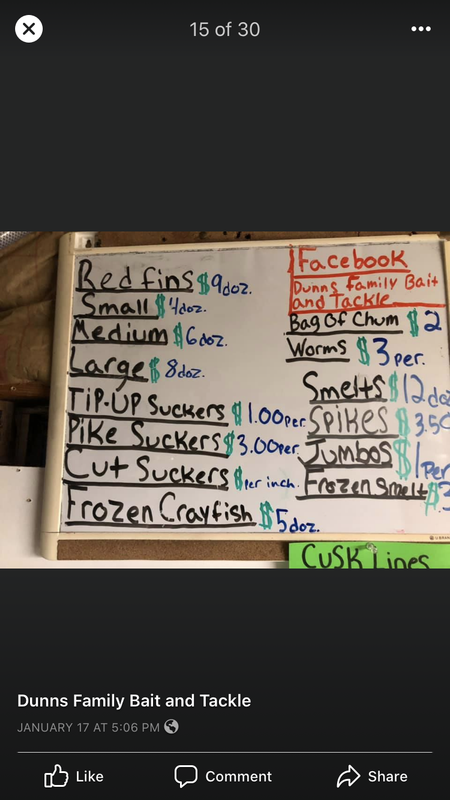 15 of 30
Red fins $9doz.
Small $4doz.
Medium $6doz.
Large $8doz.
TiP-UP Suckers $1.00per.
Pike Suckers $3.00per.
Cut Suckers $per inch.
Frozen Crayfish $5doz.
Facebook
Dunns Family Bait
and Tackle
Bag Of Chum $2
Worms $3per.
Smelts $12doz
Spikes $3.50
Jumbos $1per
Frozen Smelt $
Cusk Lines
Dunns Family Bait and Tackle
JANUARY 17 AT 5:06 PM
Like
Comment
Share